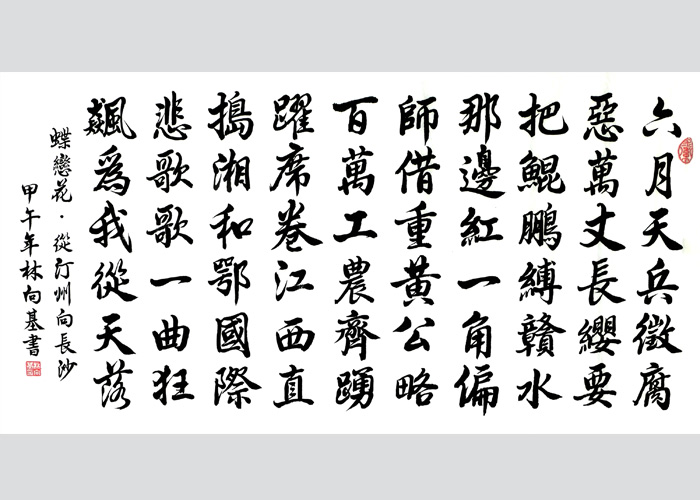 六月天兵徵腐
惡萬丈長纓要
把鯤鵬縛贛水
那邊紅一角偏
師借重黃公略
百萬工農齊踴
躍席卷江西直
搗湘和鄂國際
悲歌歌一曲狂
飆為我從天落
蝶戀花·從汀州向長沙
甲午年林向基書